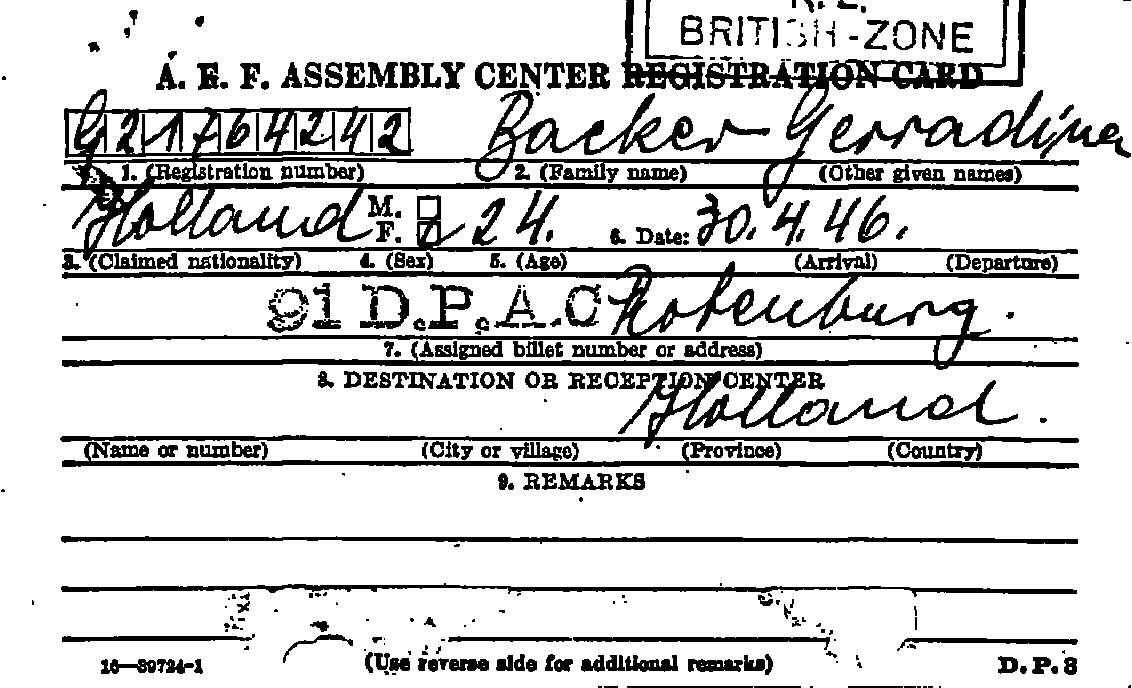 BRITISH-ZONE
A. E. F. ASSEMBLY CENTER REGISTRATION CARD
G21764242 Backer Gerradina
1. (Registration number) 2. (Family name) (Other given names)
Holland M. F. 24. 6. Date: 30.4.46.
3. (Claimed nationality) 4. (Sex) 5. (Age) (Arrival) (Departure)
91 D.P.A.C Rotenburg.
7. (Assigned billet number or address)
8. DESTINATION OR RECEPTION CENTER
Holland.
(Name or number) (City or village) (Province) (Country)
9. REMARKS
16—39724-1 (Use reverse side for additional remarks) D.P.3